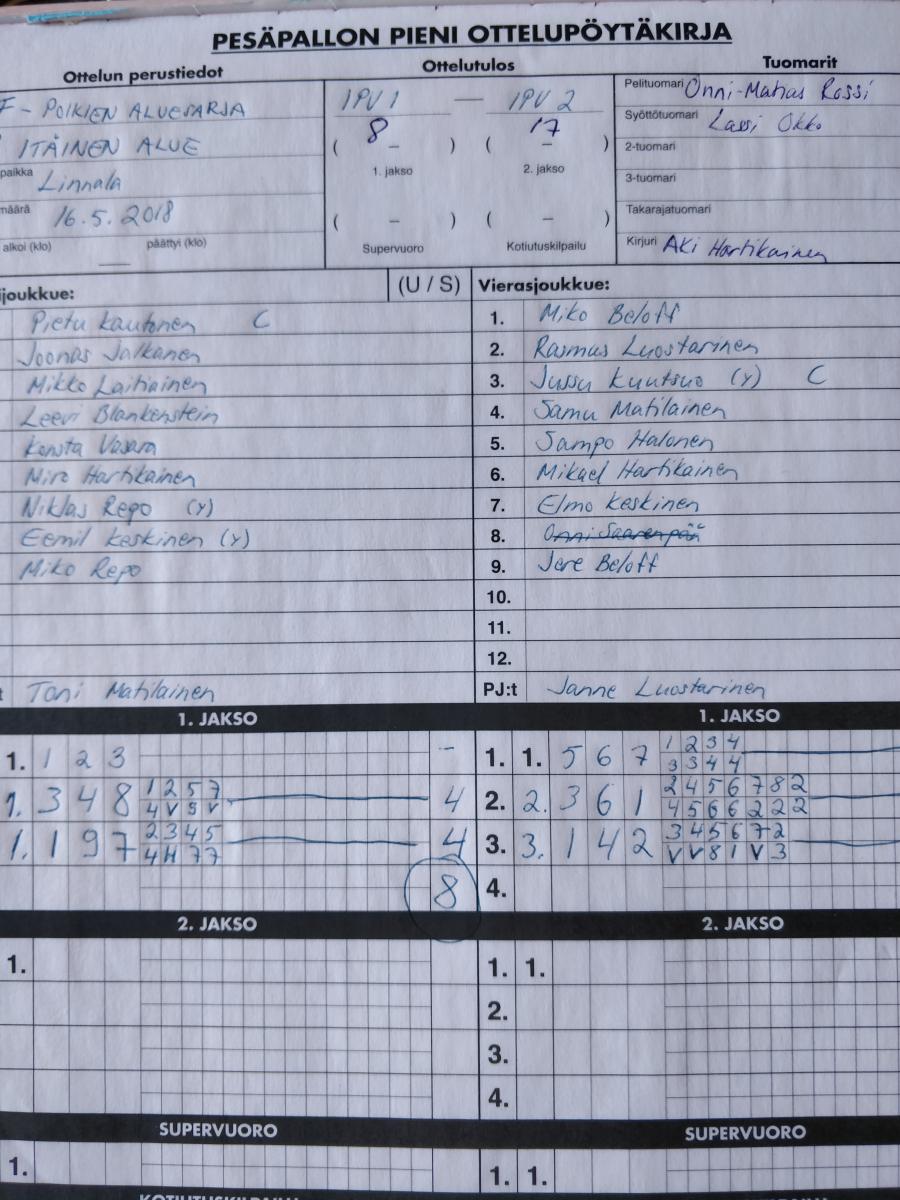 PESÄPALLON PIENI OTTELUPÖYTÄKIRJA
Ottelun perustiedot
Ottelutulos
Tuomarit
F-POIKIEN ALUESARJA
ITÄINEN ALUE
paikka Linnala
määrä 16.5.2018
alkoi (klo) päättyi (klo)
IPV 1 — IPV 2
8 17
( – ) ( – )
1. jakso 2. jakso
( – ) ( – )
Supervuoro Kotiutuskilpailu
Pelituomari Onni-Matias Rossi
Syöttötuomari Lassi Okko
2-tuomari
3-tuomari
Takarajatuomari
Kirjuri Aki Hartikainen
ijoukkue: (U / S)
Pietu Kautonen C
Joonas Jalkanen
Mikko Laitiainen
Leevi Blankenstein
Konsta Vasara
Miro Hartikainen
Niklas Repo (Y)
Eemil Keskinen (Y)
Miko Repo
t Toni Matilainen
Vierasjoukkue:
1. Miko Beloff
2. Rasmus Luostarinen
3. Jussu Kuutsuo (Y) C
4. Samu Matilainen
5. Sampo Halonen
6. Mikael Hartikainen
7. Elmo Keskinen
8. Onni Saarenpää
9. Jere Beloff
10.
11.
12.
PJ:t Janne Luostarinen
1. JAKSO
1. 1 2 3 -
1. 3 4 8 1 2 5 7 4
4 V 5 V
1. 1 9 7 2 3 4 5 4
4 H 7 7
8
1. JAKSO
1. 1. 5 6 7 1 2 3 4
3 3 4 4
2. 2. 3 6 1 2 4 5 6 7 8 2
4 5 6 6 2 2 2
3. 3. 1 4 2 3 4 5 6 7 2
V V 8 1 V 3
4.
2. JAKSO
1.
2. JAKSO
1. 1.
2.
3.
4.
SUPERVUORO
1.
SUPERVUORO
1. 1.
KOTIUTUSKILPAILU